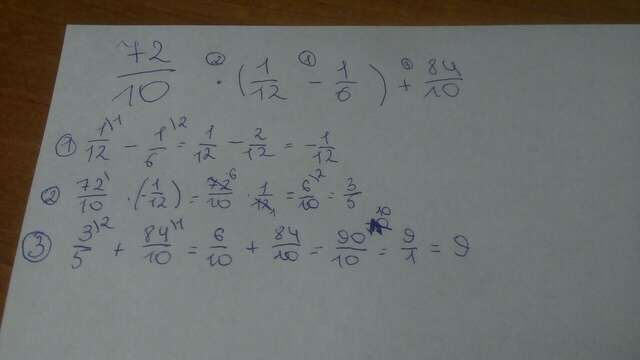 72/10 ② · (1/12 ① - 1/6) ③ + 84/10
① 1\1/12 - 1\2/6 = 1/12 - 2/12 = -1/12
② 72\/10 · (-1/12) = 72 6/10 · 1/12 1 = 6\2/10 = 3/5
③ 3\2/5 + 84\1/10 = 6/10 + 84/10 = 90/10 \10 = 9/1 = 9